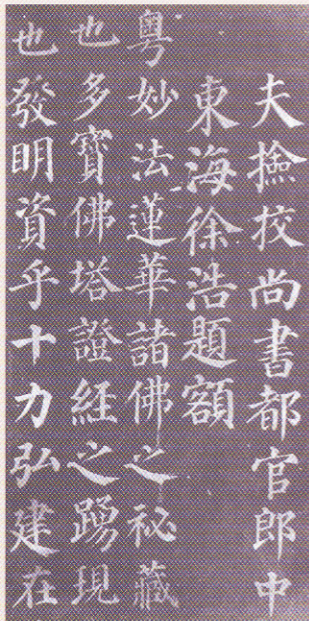 夫撿挍尚書都官郎中
東海徐浩題額
粤妙法蓮華諸佛之秘藏
也多寶佛塔證経之踴現
也發明資乎十力弘建在